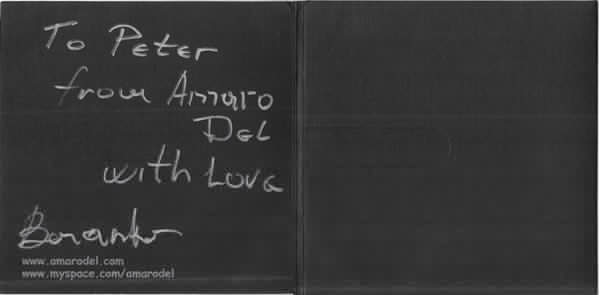 To Peter
from Amaro
Del
with Love
www.amarodel.com
www.myspace.com/amarodel